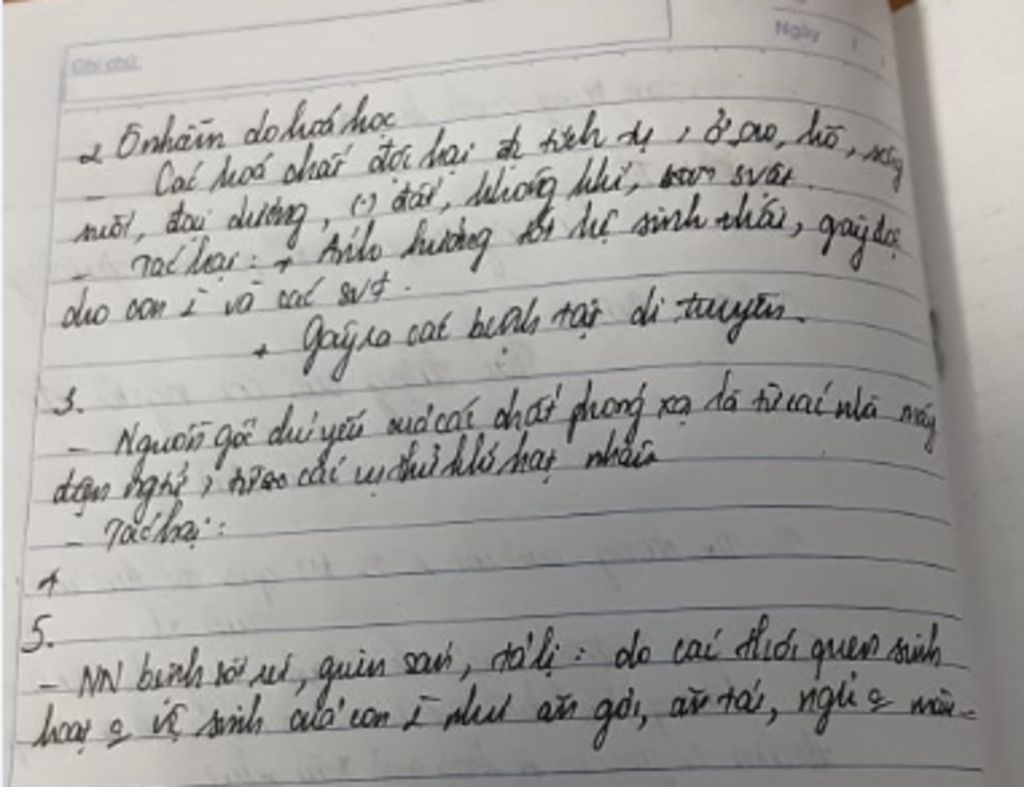 Ghi chú:
Ngày /
2 Ô nhiễm do hoá học
- Các hoá chất độc hại đc tích tụ, ở ao, hồ, sông
suối, đại dương, (-) đất, không khí, svật.
- Tác hại: + Ảnh hưởng tới hệ sinh thái, gây độc
cho con ĩ và các svt.
+ Gây ra các bệnh tật di truyền.
3.
- Nguồn gốc chủ yếu các chất phóng xạ là từ các nhà máy
điện ngtử, các vụ thử khí hạt nhân
- Tác hại:
+
5.
- NN bệnh sốt rét, giun sán, tả lị: do các thói quen sinh
hoạt vệ sinh của con ĩ như ăn gỏi, ăn tái, ngủ màn